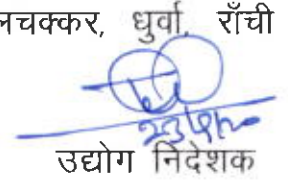 लचक्कर, धुर्वा, राँची
उद्योग निदेशक